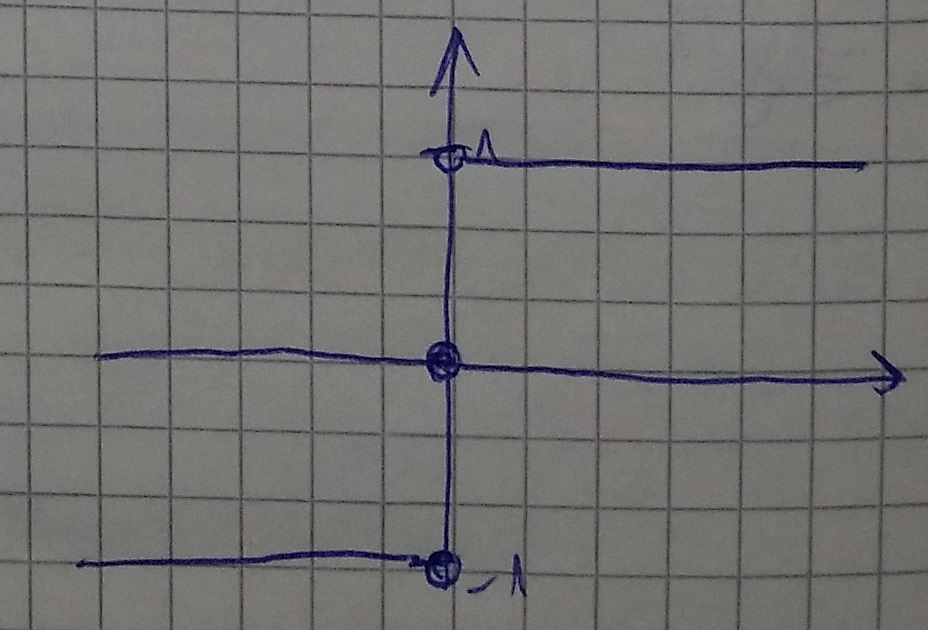 1
-1